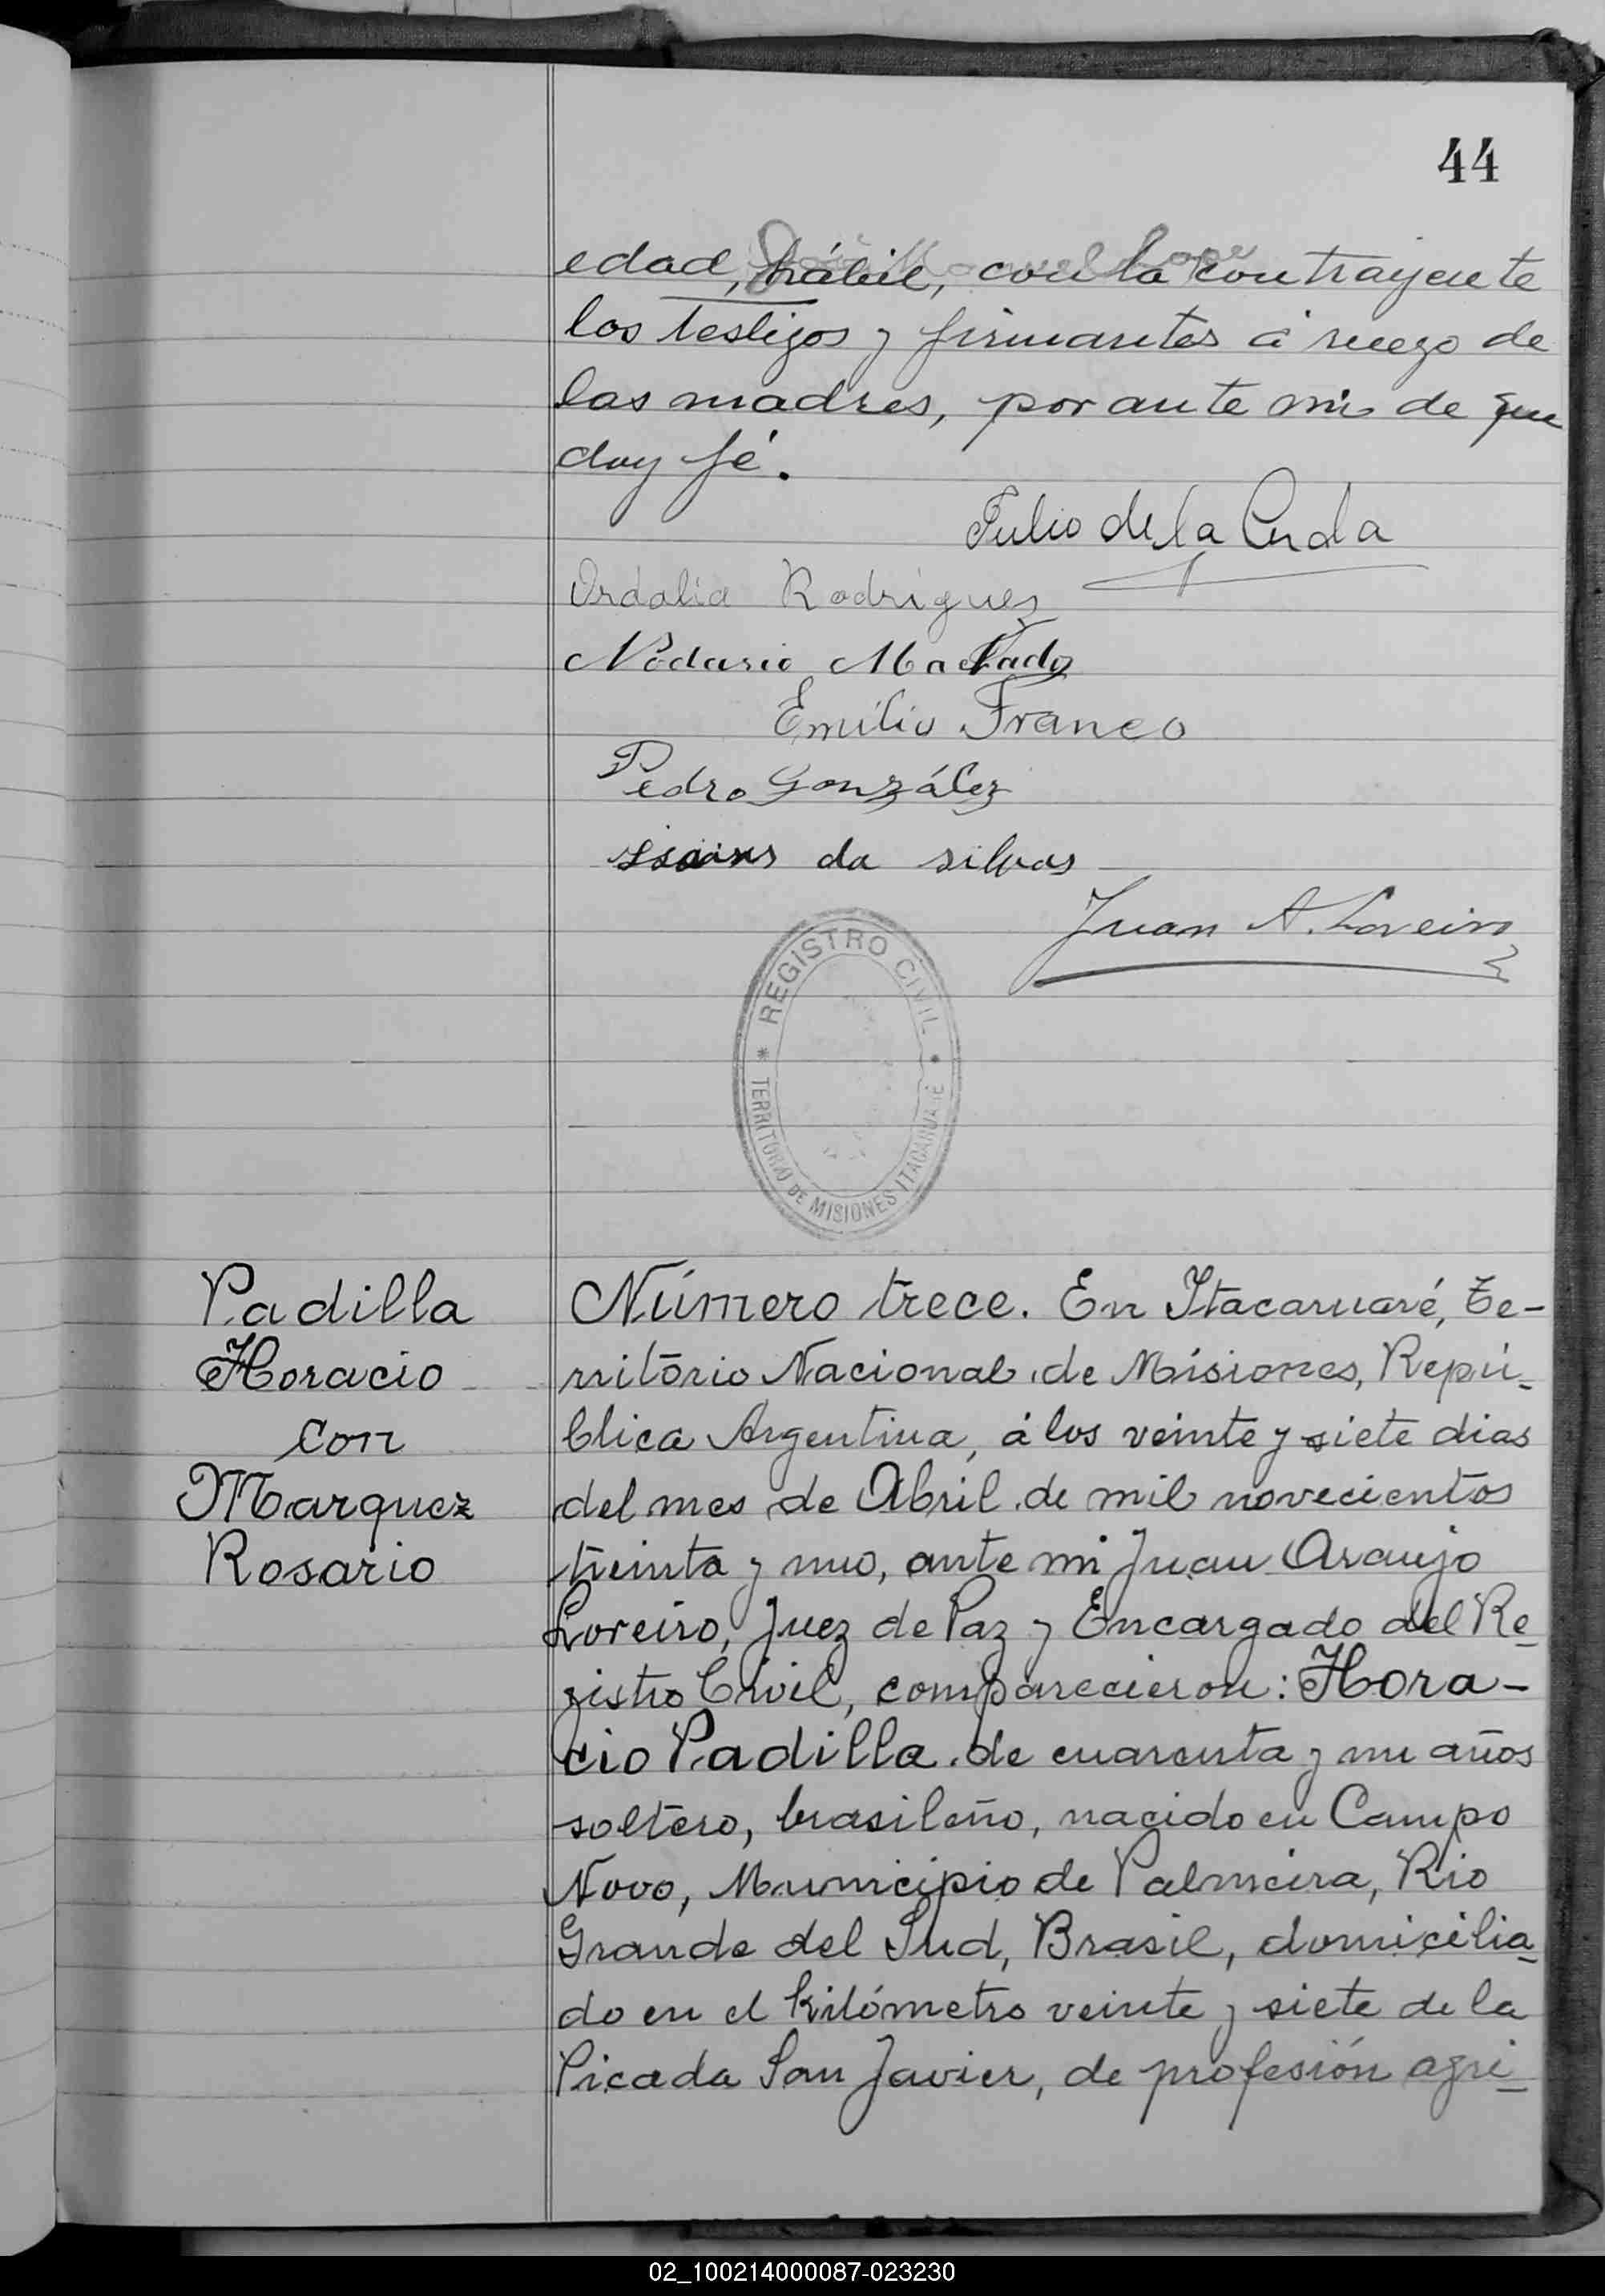 44
edad, hábil, con la contrayente
los testigos y firmantes á ruego de
las madres, por ante mi de que
doy fé.
Julio de la Cerda
Ordalia Rodriguez
Machado
Emilio Franco
Pedro González
da silvas
Juan A. Loreiro
REGISTRO CIVIL
TERRITORIO DE MISIONES ITACARUARÉ
Padilla
Horacio
con
Marquez
Rosario
Número trece. En Itacaruaré, Te-
rritório Nacional de Misiones, Repú-
blica Argentina, á los veinte y siete dias
del mes de Abril de mil novecientos
treinta y uno, ante mi Juan Araujo
Loreiro, Juez de Paz y Encargado del Re-
gistro Civil, comparecieron: Hora-
cio Padilla de cuarenta y un años
soltero, brasileño, nacido en Campo
Novo, Municipio de Palmeira, Rio
Grande del Sud, Brasil, domicilia-
do en el kilómetro veinte y siete de la
Picada San Javier, de profesión agri-
02_100214000087-023230